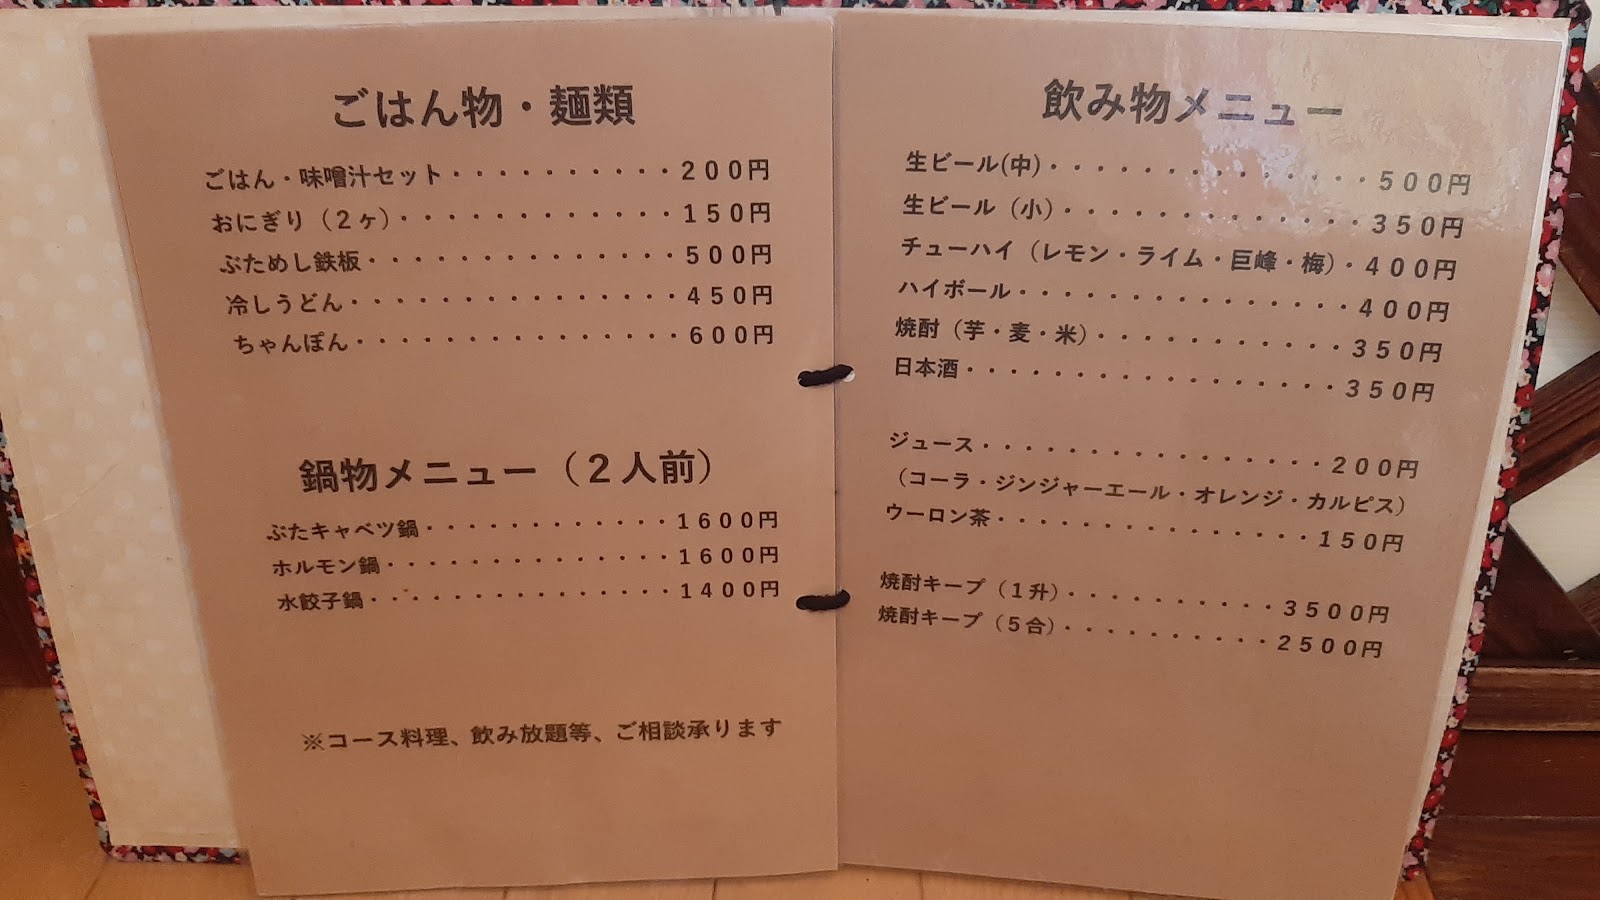 ごはん物・麺類
ごはん・味噌汁セット・・・・・・・・・・200円
おにぎり（2ヶ）・・・・・・・・・・・・150円
ぶためし鉄板・・・・・・・・・・・・・・500円
冷しうどん・・・・・・・・・・・・・・・450円
ちゃんぽん・・・・・・・・・・・・・・・600円
鍋物メニュー（２人前）
ぶたキャベツ鍋・・・・・・・・・・・・1600円
ホルモン鍋・・・・・・・・・・・・・・1600円
水餃子鍋・・・・・・・・・・・・・・・1400円
※コース料理、飲み放題等、ご相談承ります
飲み物メニュー
生ビール(中)・・・・・・・・・・・・・・500円
生ビール（小）・・・・・・・・・・・・・350円
チューハイ（レモン・ライム・巨峰・梅）・400円
ハイボール・・・・・・・・・・・・・・・400円
焼酎（芋・麦・米）・・・・・・・・・・・350円
日本酒・・・・・・・・・・・・・・・・・350円
ジュース・・・・・・・・・・・・・・・・200円
（コーラ・ジンジャーエール・オレンジ・カルピス）
ウーロン茶・・・・・・・・・・・・・・・150円
焼酎キープ（１升）・・・・・・・・・・3500円
焼酎キープ（５合）・・・・・・・・・・2500円